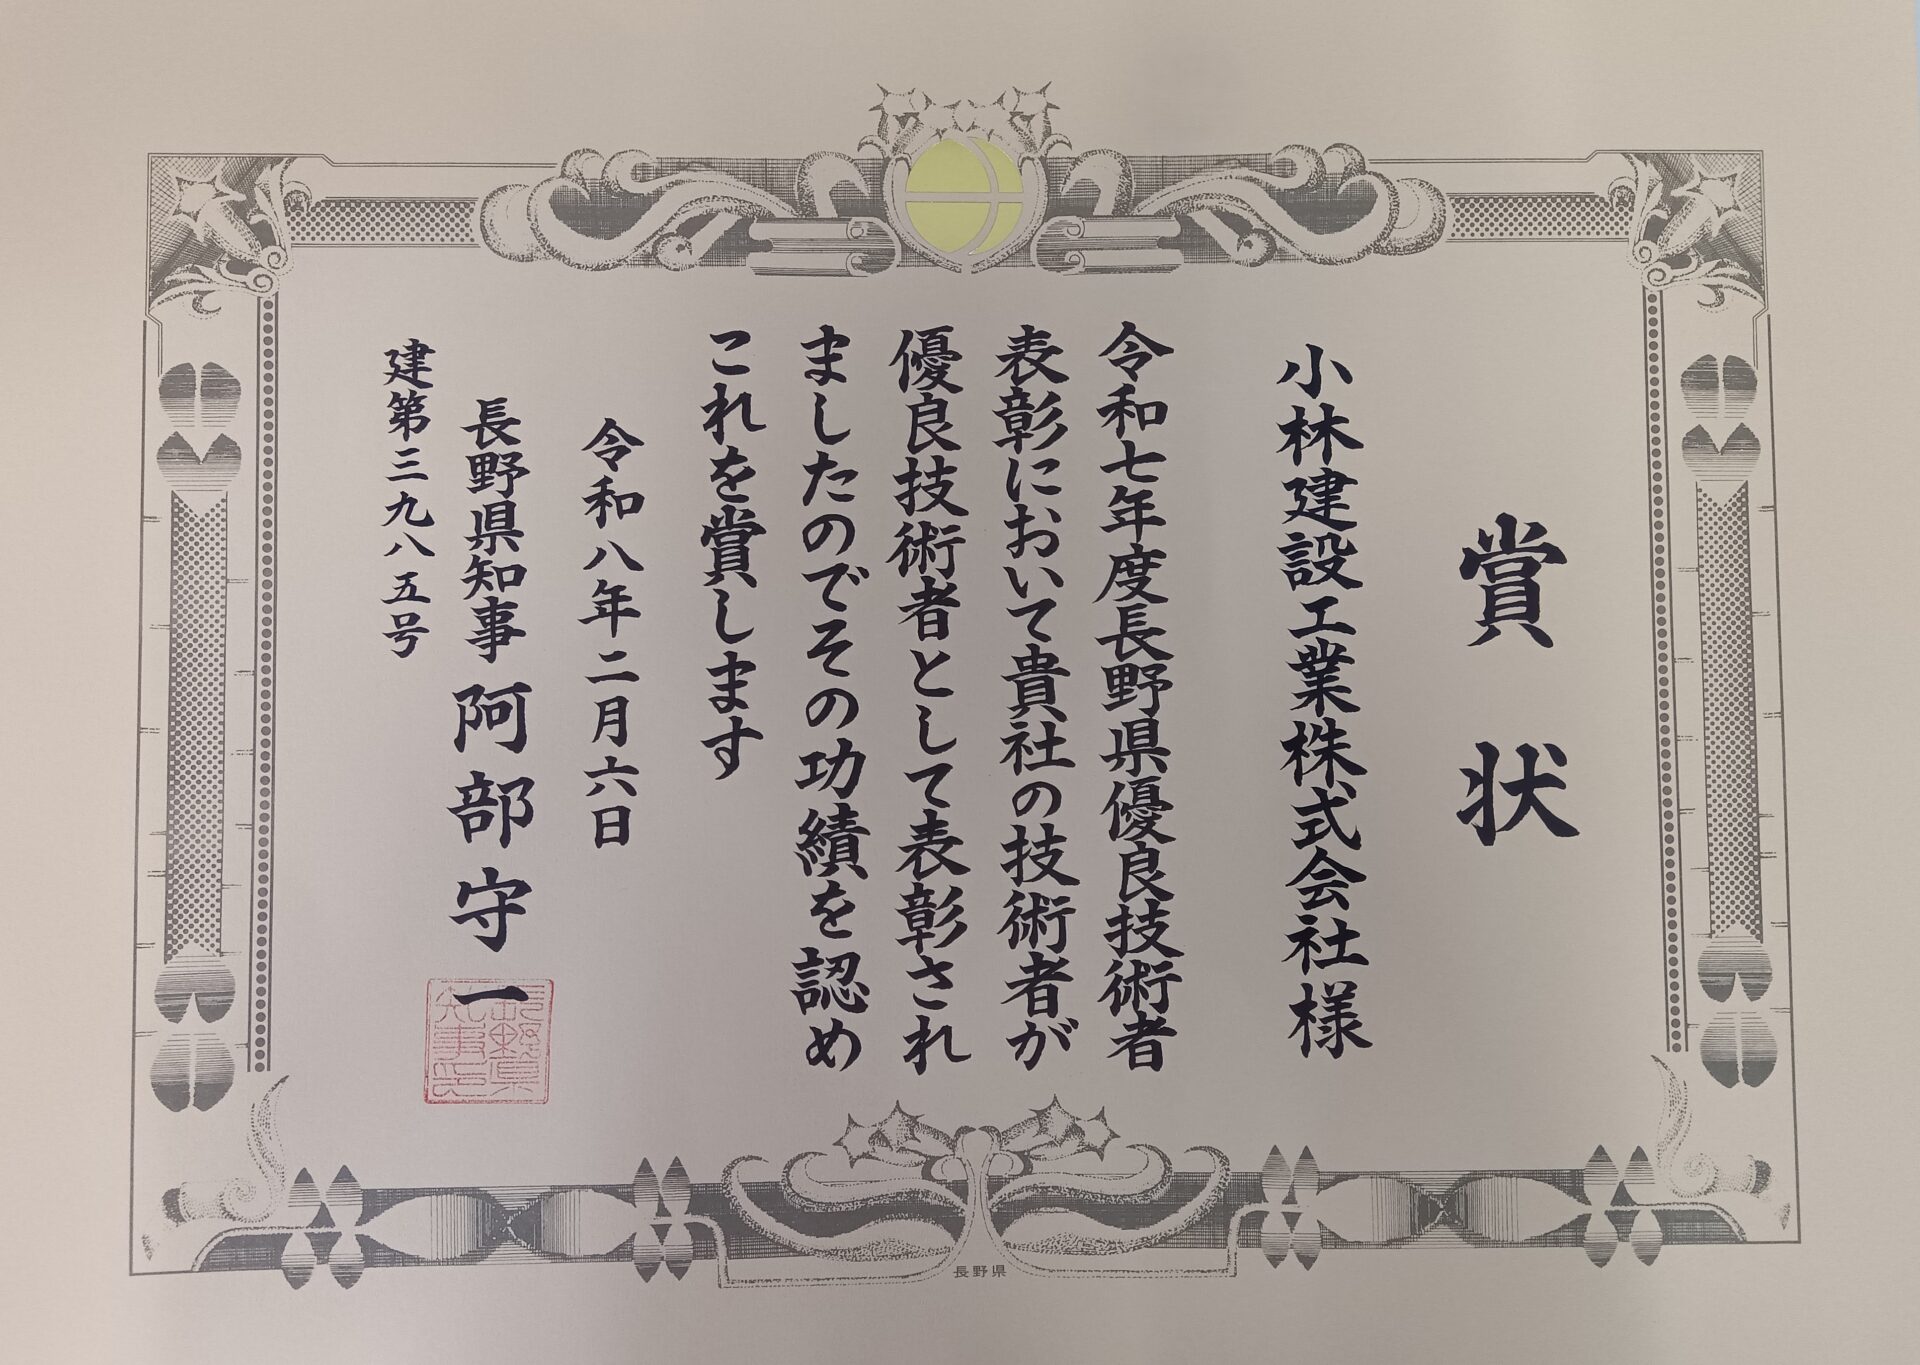 賞状
小林建設工業株式会社様
令和七年度長野県優良技術者
表彰において貴社の技術者が
優良技術者として表彰され
ましたのでその功績を認め
これを賞します
令和八年二月六日
長野県知事 阿部守一
建第三九八五号
長野県知事印
長野県